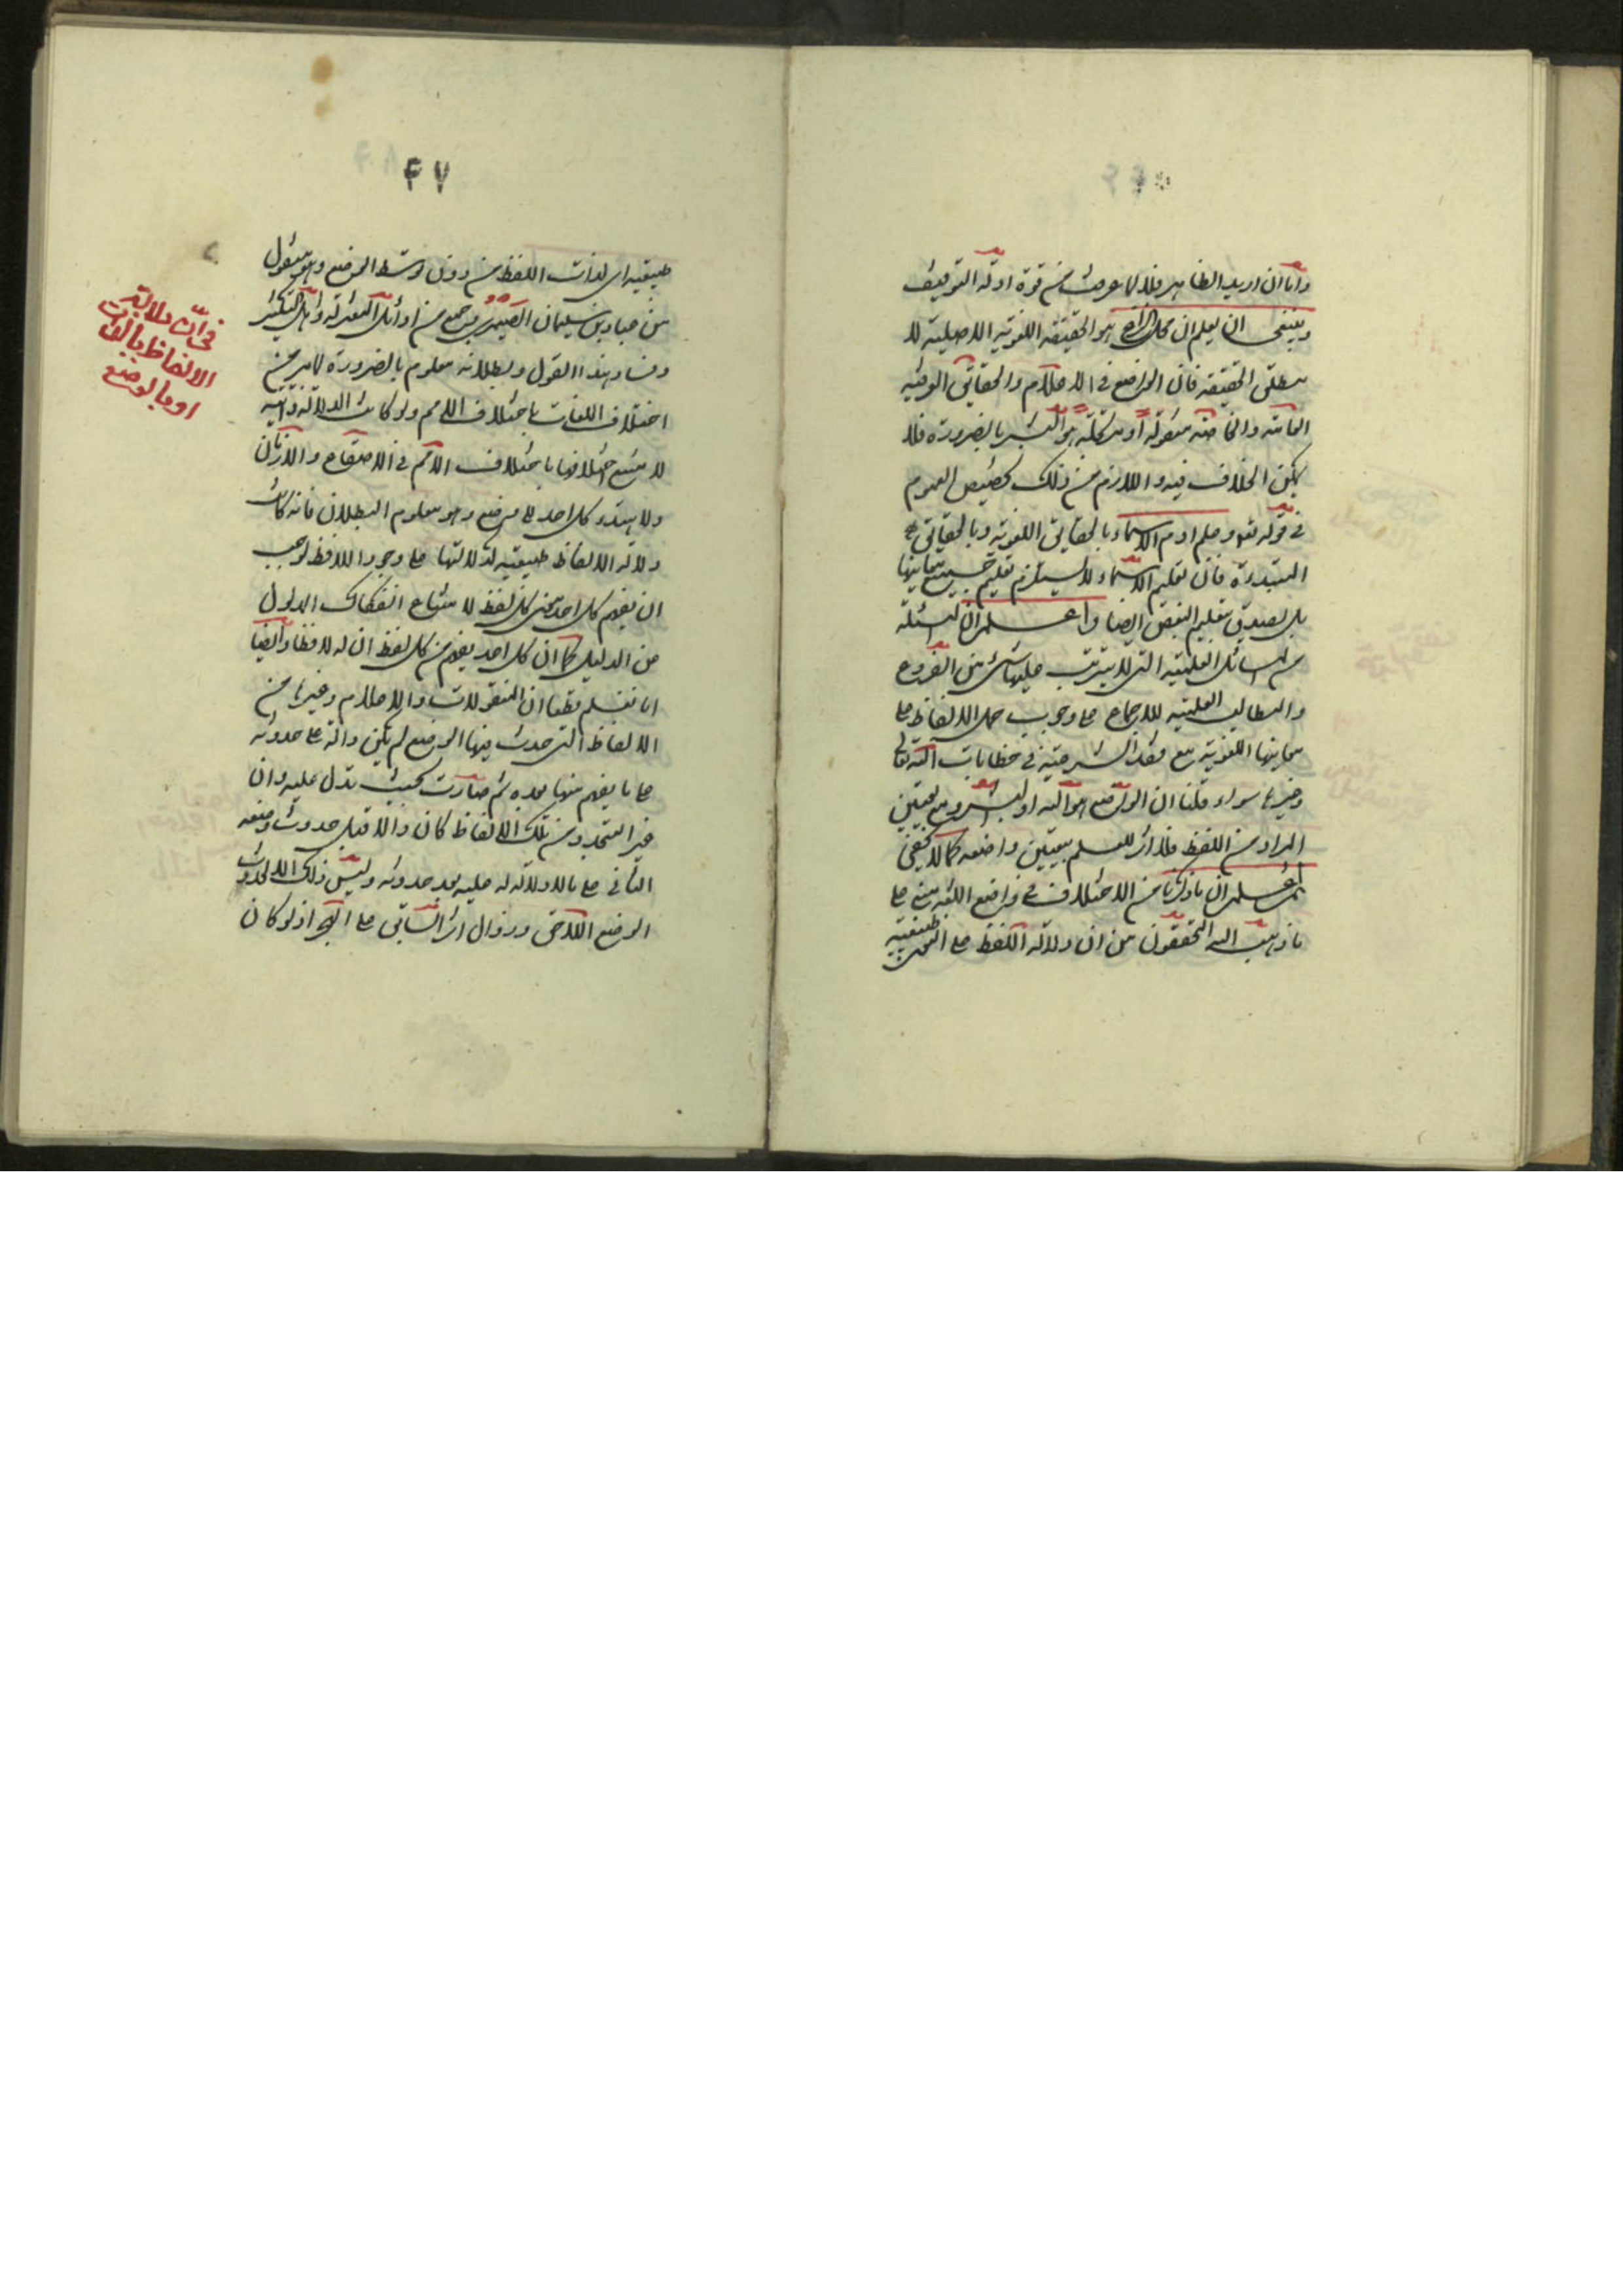 واما ان اريد الظاهر فلا لما عرفت من قوة ادلة التوقيف
وينبغي ان يعلم ان محل النزاع هو الحقيقة اللغوية الاصلية لا
مطلق الحقيقة فان الواضع في الاعلام والحقائق العرفية
العامة والخاصة منقولة او مرتجلة هو البشر بالضرورة فلا
يمكن الخلاف فيه واللازم من ذلك تخصيص العموم
في قوله تع وعلم ادم الاسماء بالحقايق اللغوية وبالحقايق
المبتدرة فان تعليم الاسماء لا يستلزم تعليم جميع معانيها
بل يصدق بتعليم البعض ايضا واعلم ان المسئلة
من المسائل العلمية التي لا يترتب عليها شئ من الفروع
والمطالب العملية للاجماع على وجوب حمل الالفاظ على
معانيها اللغوية مع فقد الشرعية في خطابات الله تعالى
وغيرها سواء قلنا ان الواضع هو الله او البشر ومع تعيين
المراد من اللفظ فلا اثر للعلم بتعيين واضعه كما لا يخفى
ثم اعلم ان ما ذكرنا من الاختلاف في واضع اللغة مبني على
ما ذهب اليه المحققون من ان دلالة اللفظ على المعنى
طبيعية
۴۷
طبيعية اي لذات اللفظ من دون توسط الوضع وهو منقول
عن عباد بن سليمان الصيمري وجمع من اوائل المعتزلة واهل التكسير
وفساد هذا القول وبطلانه معلوم بالضرورة لما نرى من
اختلاف اللغات باختلاف الامم ولو كانت الدلالة ذاتية
لامتنع اختلافها باختلاف الامم في الاصقاع والازمان
ولاهتدى كل احد الى كل وضع وهو معلوم البطلان فانه لو كانت
دلالة الالفاظ طبيعية لدلالتها على وجود اللافظ لوجب
ان يفهم كل احد معنى كل لفظ لامتناع انفكاك المدلول
عن الدليل كما ان كل احد يفهم من كل لفظ ان له لافظا وايضا
انا نعلم قطعا ان المنقولات والاعلام وغيرها من
الالفاظ التي حدث فيها الوضع لم تكن دالة على حدوثه
على ما يفهم منها بعده ثم صارت بحيث تدل عليه وان
غير المتجدد من تلك الالفاظ كان دالا قبل حدوث وضعه
الثاني على ما لا دلالة له عليه بعد حدوثه وليس ذلك الا لحدوث
الوضع اللاحق وزوال اثر السابق اذ لو كان
في ان دلالة
الالفاظ بالذات
او بالوضع